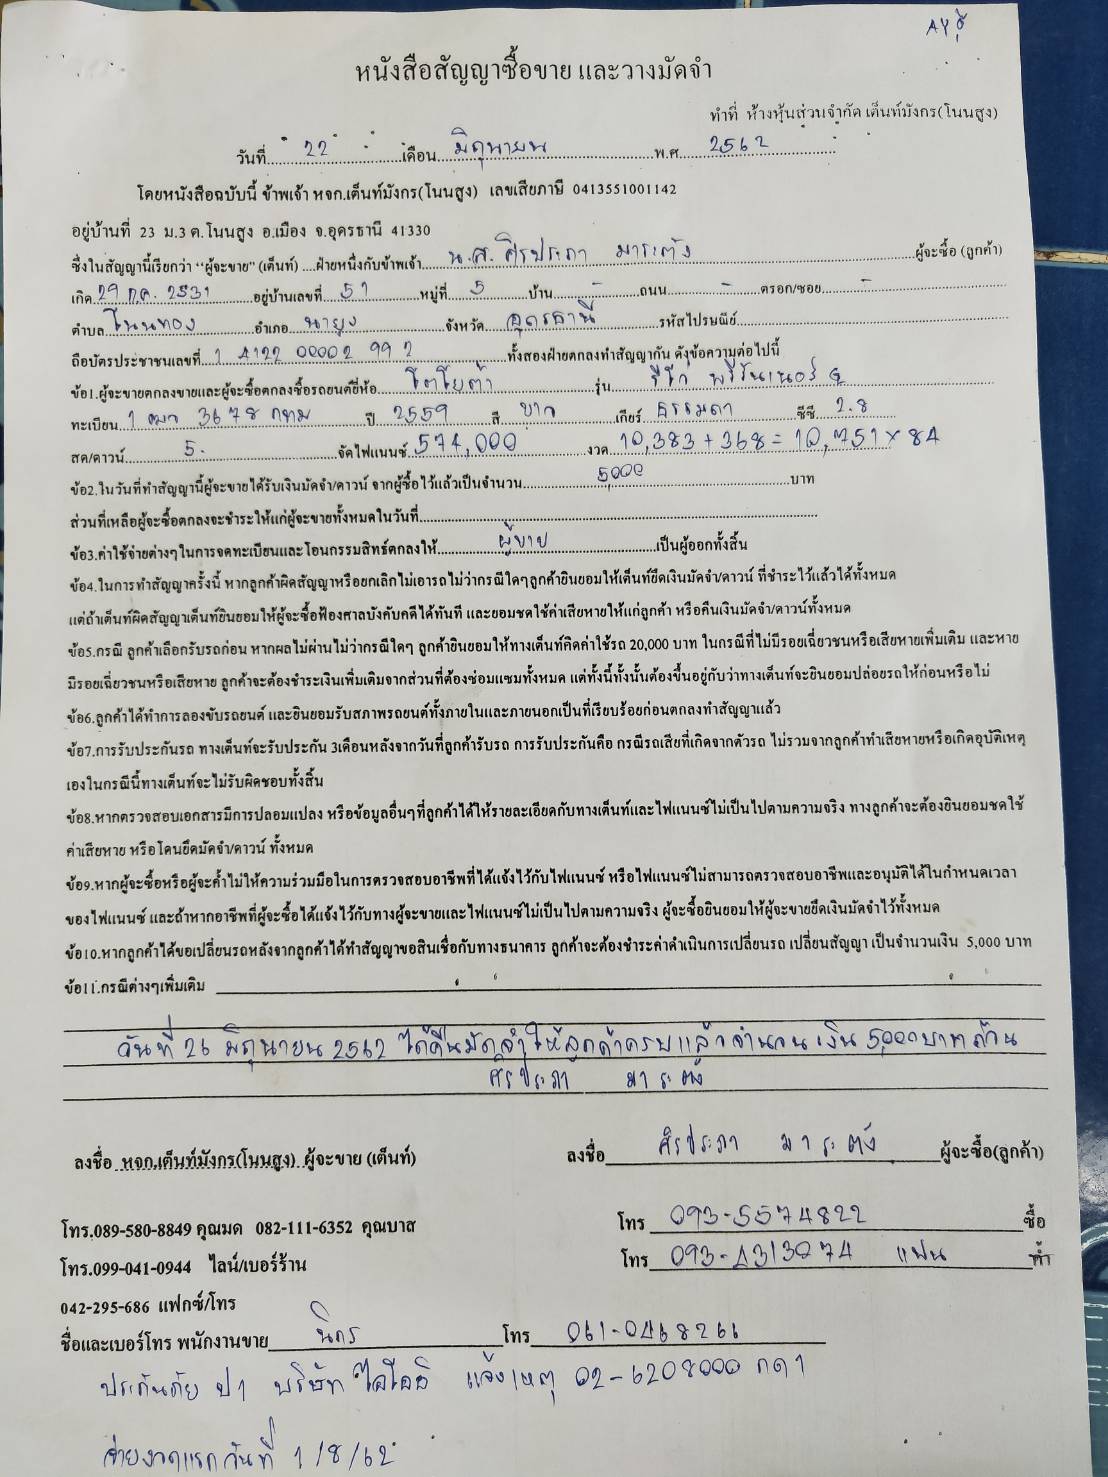 AY
หนังสือสัญญาซื้อขาย และวางมัดจำ
ทำที่ ห้างหุ้นส่วนจำกัด เต็นท์มังกร(โนนสูง)
วันที่ 22 เดือน มิถุนายน พ.ศ 2562
โดยหนังสือฉบับนี้ ข้าพเจ้า หจก.เต็นท์มังกร(โนนสูง) เลขเสียภาษี 0413551001142
อยู่บ้านที่ 23 ม.3 ต.โนนสูง อ.เมือง จ.อุดรธานี 41330
ซึ่งในสัญญานี้เรียกว่า "ผู้จะขาย" (เต็นท์) ....ฝ่ายหนึ่งกับข้าพเจ้า น.ส. ศิรประภา มาระตัง ผู้จะซื้อ (ลูกค้า)
เกิด 29 กค. 2531 อยู่บ้านเลขที่ 51 หมู่ที่ 5 บ้าน - ถนน - ตรอก/ซอย -
ตำบล โนนทอง อำเภอ นายูง จังหวัด อุดรธานี รหัสไปรษณีย์
ถือบัตรประชาชนเลขที่ 1 4122 00002 99 2 ทั้งสองฝ่ายตกลงทำสัญญากัน ดังข้อความต่อไปนี้
ข้อ1.ผู้จะขายตกลงขายและผู้จะซื้อตกลงซื้อรถยนต์ยี่ห้อ โตโยต้า รุ่น รีโว่ พรีรันเนอร์ G
ทะเบียน 3678 กทม ปี 2559 สี ขาว เกียร์ ธรรมดา ซีซี 2.8
สด/ดาวน์ 5. จัดไฟแนนซ์ 574,000 งวด 10,383 + 368 = 10,751 x 84
ข้อ2.ในวันที่ทำสัญญานี้ผู้จะขายได้รับเงินมัดจำ/ดาวน์ จากผู้ซื้อไว้แล้วเป็นจำนวน 5,000 บาท
ส่วนที่เหลือผู้จะซื้อตกลงจะชำระให้แก่ผู้จะขายทั้งหมดในวันที่
ข้อ3.ค่าใช้จ่ายต่างๆในการจดทะเบียนและโอนกรรมสิทธ์ตกลงให้ ผู้ขาย เป็นผู้ออกทั้งสิ้น
ข้อ4.ในการทำสัญญาครั้งนี้ หากลูกค้าผิดสัญญาหรือยกเลิกไม่เอารถ ไม่ว่ากรณีใดๆลูกค้ายินยอมให้เต็นท์ยึดเงินมัดจำ/ดาวน์ ที่ชำระไว้แล้วได้ทั้งหมด
แต่ถ้าเต็นท์ผิดสัญญาเต็นท์ยินยอมให้ผู้จะซื้อฟ้องศาลบังคับคดีได้ทันที และยอมชดใช้ค่าเสียหายให้แก่ลูกค้า หรือคืนเงินมัดจำ/ดาวน์ทั้งหมด
ข้อ5.กรณี ลูกค้าเลือกรับรถก่อน หากผลไม่ผ่านไม่ว่ากรณีใดๆ ลูกค้ายินยอมให้ทางเต็นท์คิดค่าใช้รถ 20,000 บาท ในกรณีที่ไม่มีรอยเฉี่ยวชนหรือเสียหายเพิ่มเติม และหาย
มีรอยเฉี่ยวชนหรือเสียหาย ลูกค้าจะต้องชำระเงินเพิ่มเติมจากส่วนที่ต้องซ่อมแซมทั้งหมด แต่ทั้งนี้ทั้งนั้นต้องขึ้นอยู่กับว่าทางเต็นท์จะยินยอมปล่อยรถให้ก่อนหรือไม่
ข้อ6.ลูกค้าได้ทำการลองขับรถยนต์ และยินยอมรับสภาพรถยนต์ทั้งภายในและภายนอกเป็นที่เรียบร้อยก่อนตกลงทำสัญญาแล้ว
ข้อ7.การรับประกันรถ ทางเต็นท์จะรับประกัน 3เดือนหลังจากวันที่ลูกค้ารับรถ การรับประกันคือ กรณีรถเสียที่เกิดจากตัวรถ ไม่รวมจากลูกค้าทำเสียหายหรือเกิดอุบัติเหตุ
เองในกรณีนี้ทางเต็นท์จะไม่รับผิดชอบทั้งสิ้น
ข้อ8.หากตรวจสอบเอกสารมีการปลอมแปลง หรือข้อมูลอื่นๆที่ลูกค้าได้ให้รายละเอียดกับทางเต็นท์และไฟแนนซ์ไม่เป็นไปตามความจริง ทางลูกค้าจะต้องยินยอมชดใช้
ค่าเสียหาย หรือโดนยึดมัดจำ/ดาวน์ ทั้งหมด
ข้อ9.หากผู้จะซื้อหรือผู้จะค้ำไม่ให้ความร่วมมือในการตรวจสอบอาชีพที่ได้แจ้งไว้กับไฟแนนซ์ หรือไฟแนนซ์ไม่สามารถตรวจสอบอาชีพและอนุมัติได้ในกำหนดเวลา
ของไฟแนนซ์ และถ้าหากอาชีพที่ผู้จะซื้อได้แจ้งไว้กับทางผู้จะขายและไฟแนนซ์ไม่เป็นไปตามความจริง ผู้จะซื้อยินยอมให้ผู้จะขายยึดเงินมัดจำไว้ทั้งหมด
ข้อ10.หากลูกค้าได้ขอเปลี่ยนรถหลังจากลูกค้าได้ทำสัญญาขอสินเชื่อกับทางธนาคาร ลูกค้าจะต้องชำระค่าดำเนินการเปลี่ยนรถ เปลี่ยนสัญญา เป็นจำนวนเงิน 5,000 บาท
ข้อ11.กรณีต่างๆเพิ่มเติม
วันที่ 26 มิถุนายน 2562 ได้คืนมัดจำให้ลูกค้าครบแล้วจำนวนเงิน 5,000 บาทถ้วน
ศิรประภา มาระตัง
ลงชื่อ หจก.เต็นท์มังกร(โนนสูง) ผู้จะขาย (เต็นท์) ลงชื่อ ศิรประภา มาระตัง ผู้จะซื้อ(ลูกค้า)
โทร.089-580-8849 คุณมด 082-111-6352 คุณบาส โทร 093-5574822 ซื้อ
โทร.099-041-0944 ไลน์/เบอร์ร้าน โทร 093-4313074 แฟน ค้ำ
042-295-686 แฟกซ์/โทร
ชื่อและเบอร์โทร พนักงานขาย นิกร โทร 061-0468266
ประกันภัย ป1 บริษัท ไอโออิ แจ้งเหตุ 02-6208000 กด 1
จ่ายงวดแรกวันที่ 1/8/62